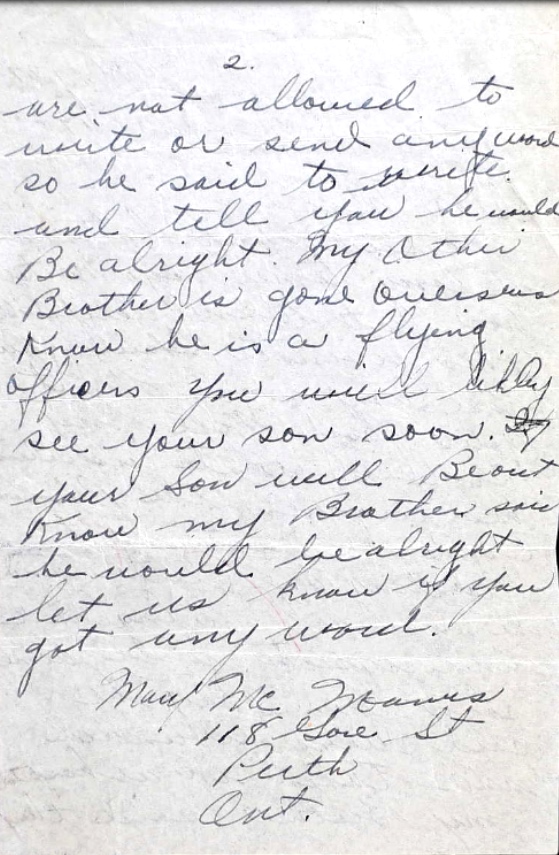 2.
are not allowed to
write or send any word
so he said to write.
and tell you he would
Be alright. My Other
Brother is gone Overseas
Know he is a flying
officers you will likly
see your son soon.
your Son will Be out
Know my Brother said
he would be alright
let us know if you
got any word.
Mc Manus
118 Gore St
Perth
Ont.